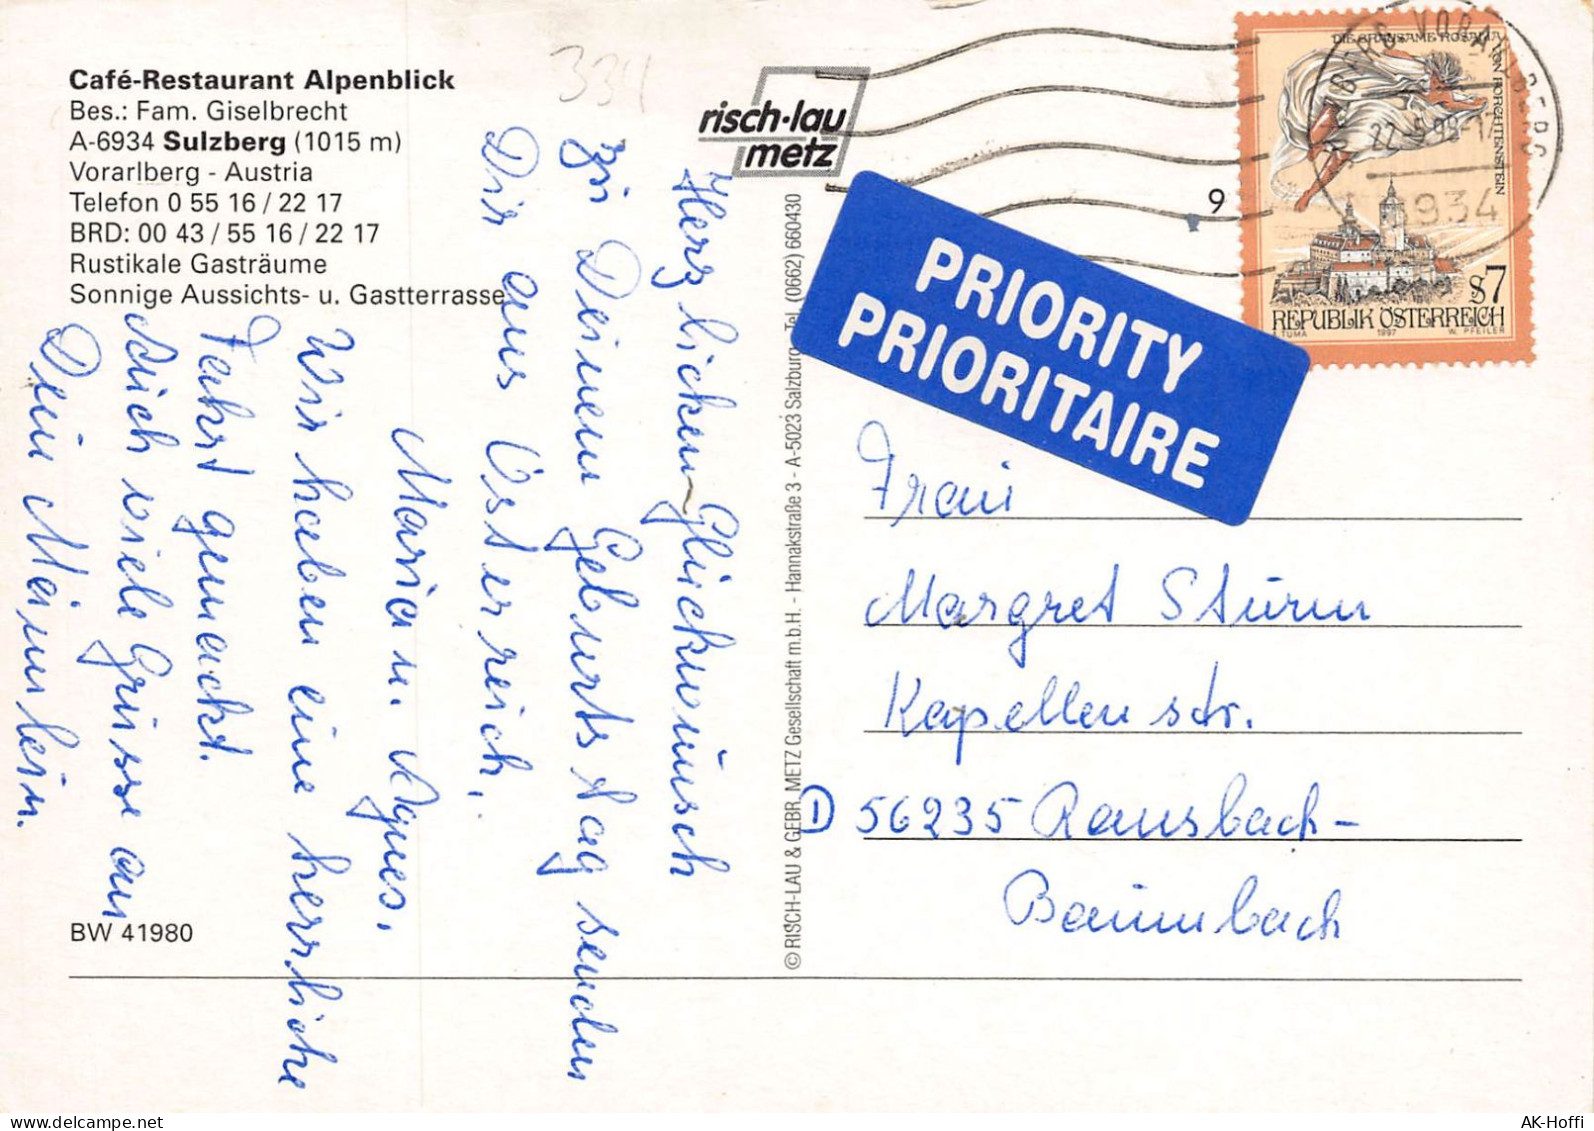 Café-Restaurant Alpenblick
Bes.: Fam. Giselbrecht
A-6934 Sulzberg (1015 m)
Vorarlberg - Austria
Telefon 0 55 16 / 22 17
BRD: 00 43 / 55 16 / 22 17
Rustikale Gasträume
Sonnige Aussichts- u. Gastterrasse
334
risch-lau
metz
Herzlichen Glückwunsch
zu Deinem Geburtstag senden
Dir aus Österreich,
Maria u. Agnes.
Wir haben eine herrliche
Fahrt gemacht.
Dich viele Grüsse an
Dein Mämmlein.
BW 41980
© RISCH-LAU & GEBR. METZ Gesellschaft m.b.H. - Hannakstraße 3 - A-5023 Salzburg, Tel. (0662) 660430
PRIORITY
PRIORITAIRE
9
DIE GRAUSAME ROSALIA
VON FORCHTENSTEIN
S7
REPUBLIK ÖSTERREICH
A. TUMA 1997 W. PFEILER
22.-5.99-17
6934
Frau
Margret Sturm
Kapellenstr.
D 56235 Ransbach-
Baumbach
AK-Hoffi